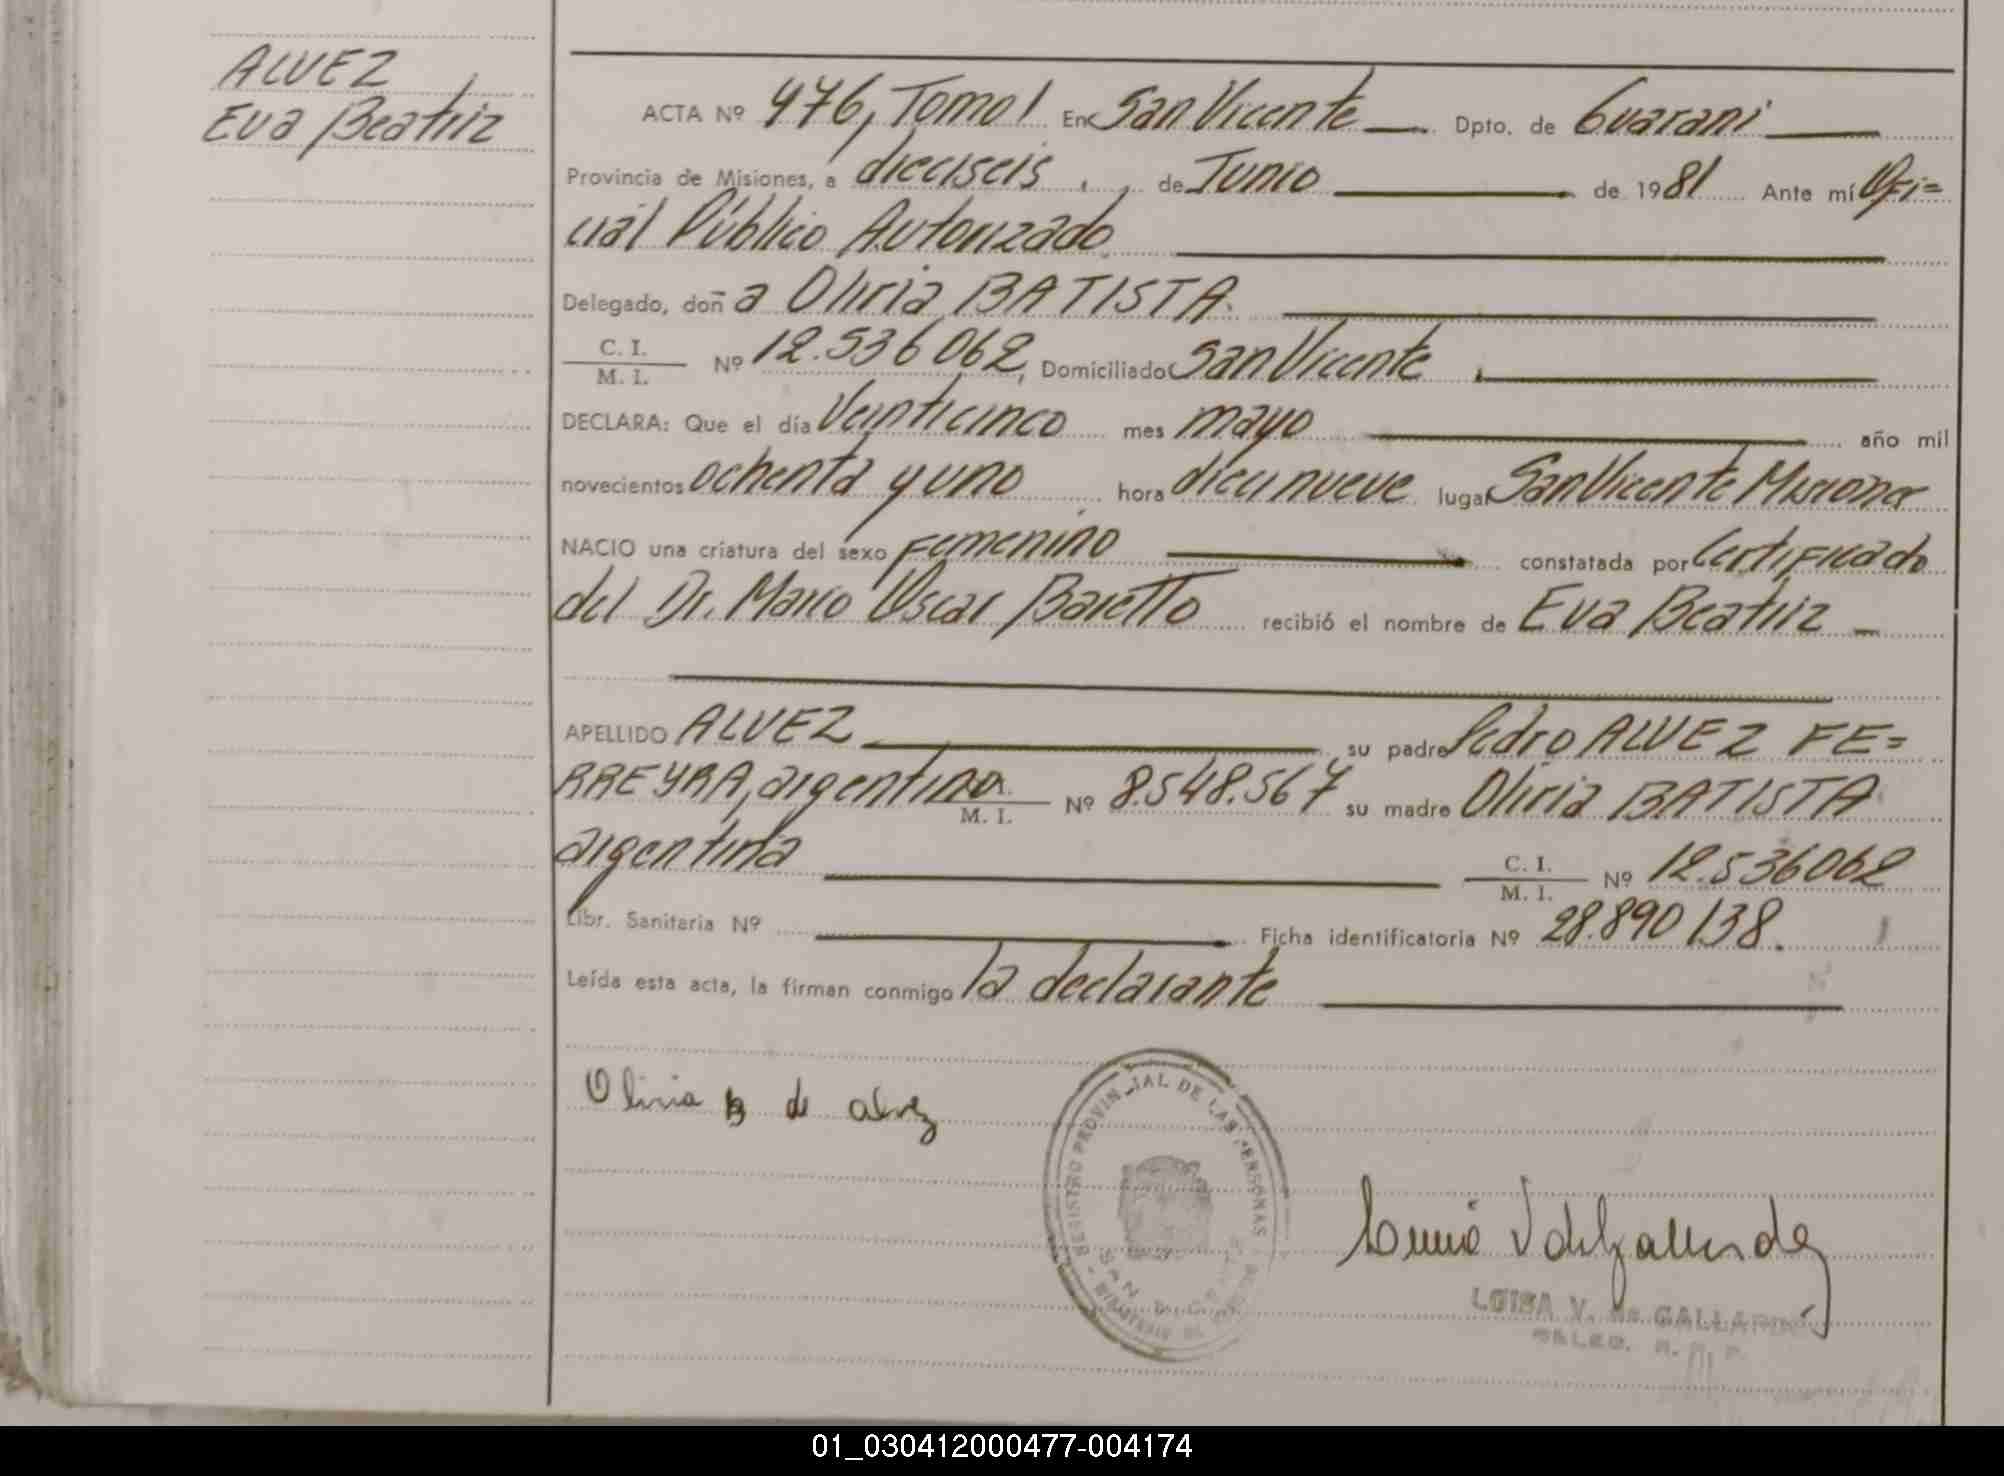 ALVEZ
Eva Beatriz
ACTA Nº 476, Tomo I En San Vicente Dpto. de Guarani
Provincia de Misiones, a dieciseis, de Junio de 1981 Ante mí Ofi=
cial Público Autorizado
Delegado, doña Oliria BATISTA.
C. I.
M. I. Nº 12.536062, Domiciliado San Vicente
DECLARA: Que el día Veinticinco mes mayo año mil
novecientos ochenta y uno hora diecinueve lugar San Vicente Misiones
NACIO una criatura del sexo Femenino constatada por Certificado
del Dr. Mario Oscar Baretto recibió el nombre de Eva Beatriz
APELLIDO ALVEZ, su padre Pedro ALVEZ FE=
RREYRA, argentino M. I. Nº 8.548.567 su madre Oliria BATISTA
argentina C. I.
M. I. Nº 12.536062
Libr. Sanitaria Nº Ficha identificatoria Nº 28.890138.
Leída esta acta, la firman conmigo la declarante
Oliria B de alvez
REGISTRO PROVINCIAL DE LAS PERSONAS
SAN VICENTE
LUISA V. de GALLARDO
DELEG. R. P. P.
01_030412000477-004174